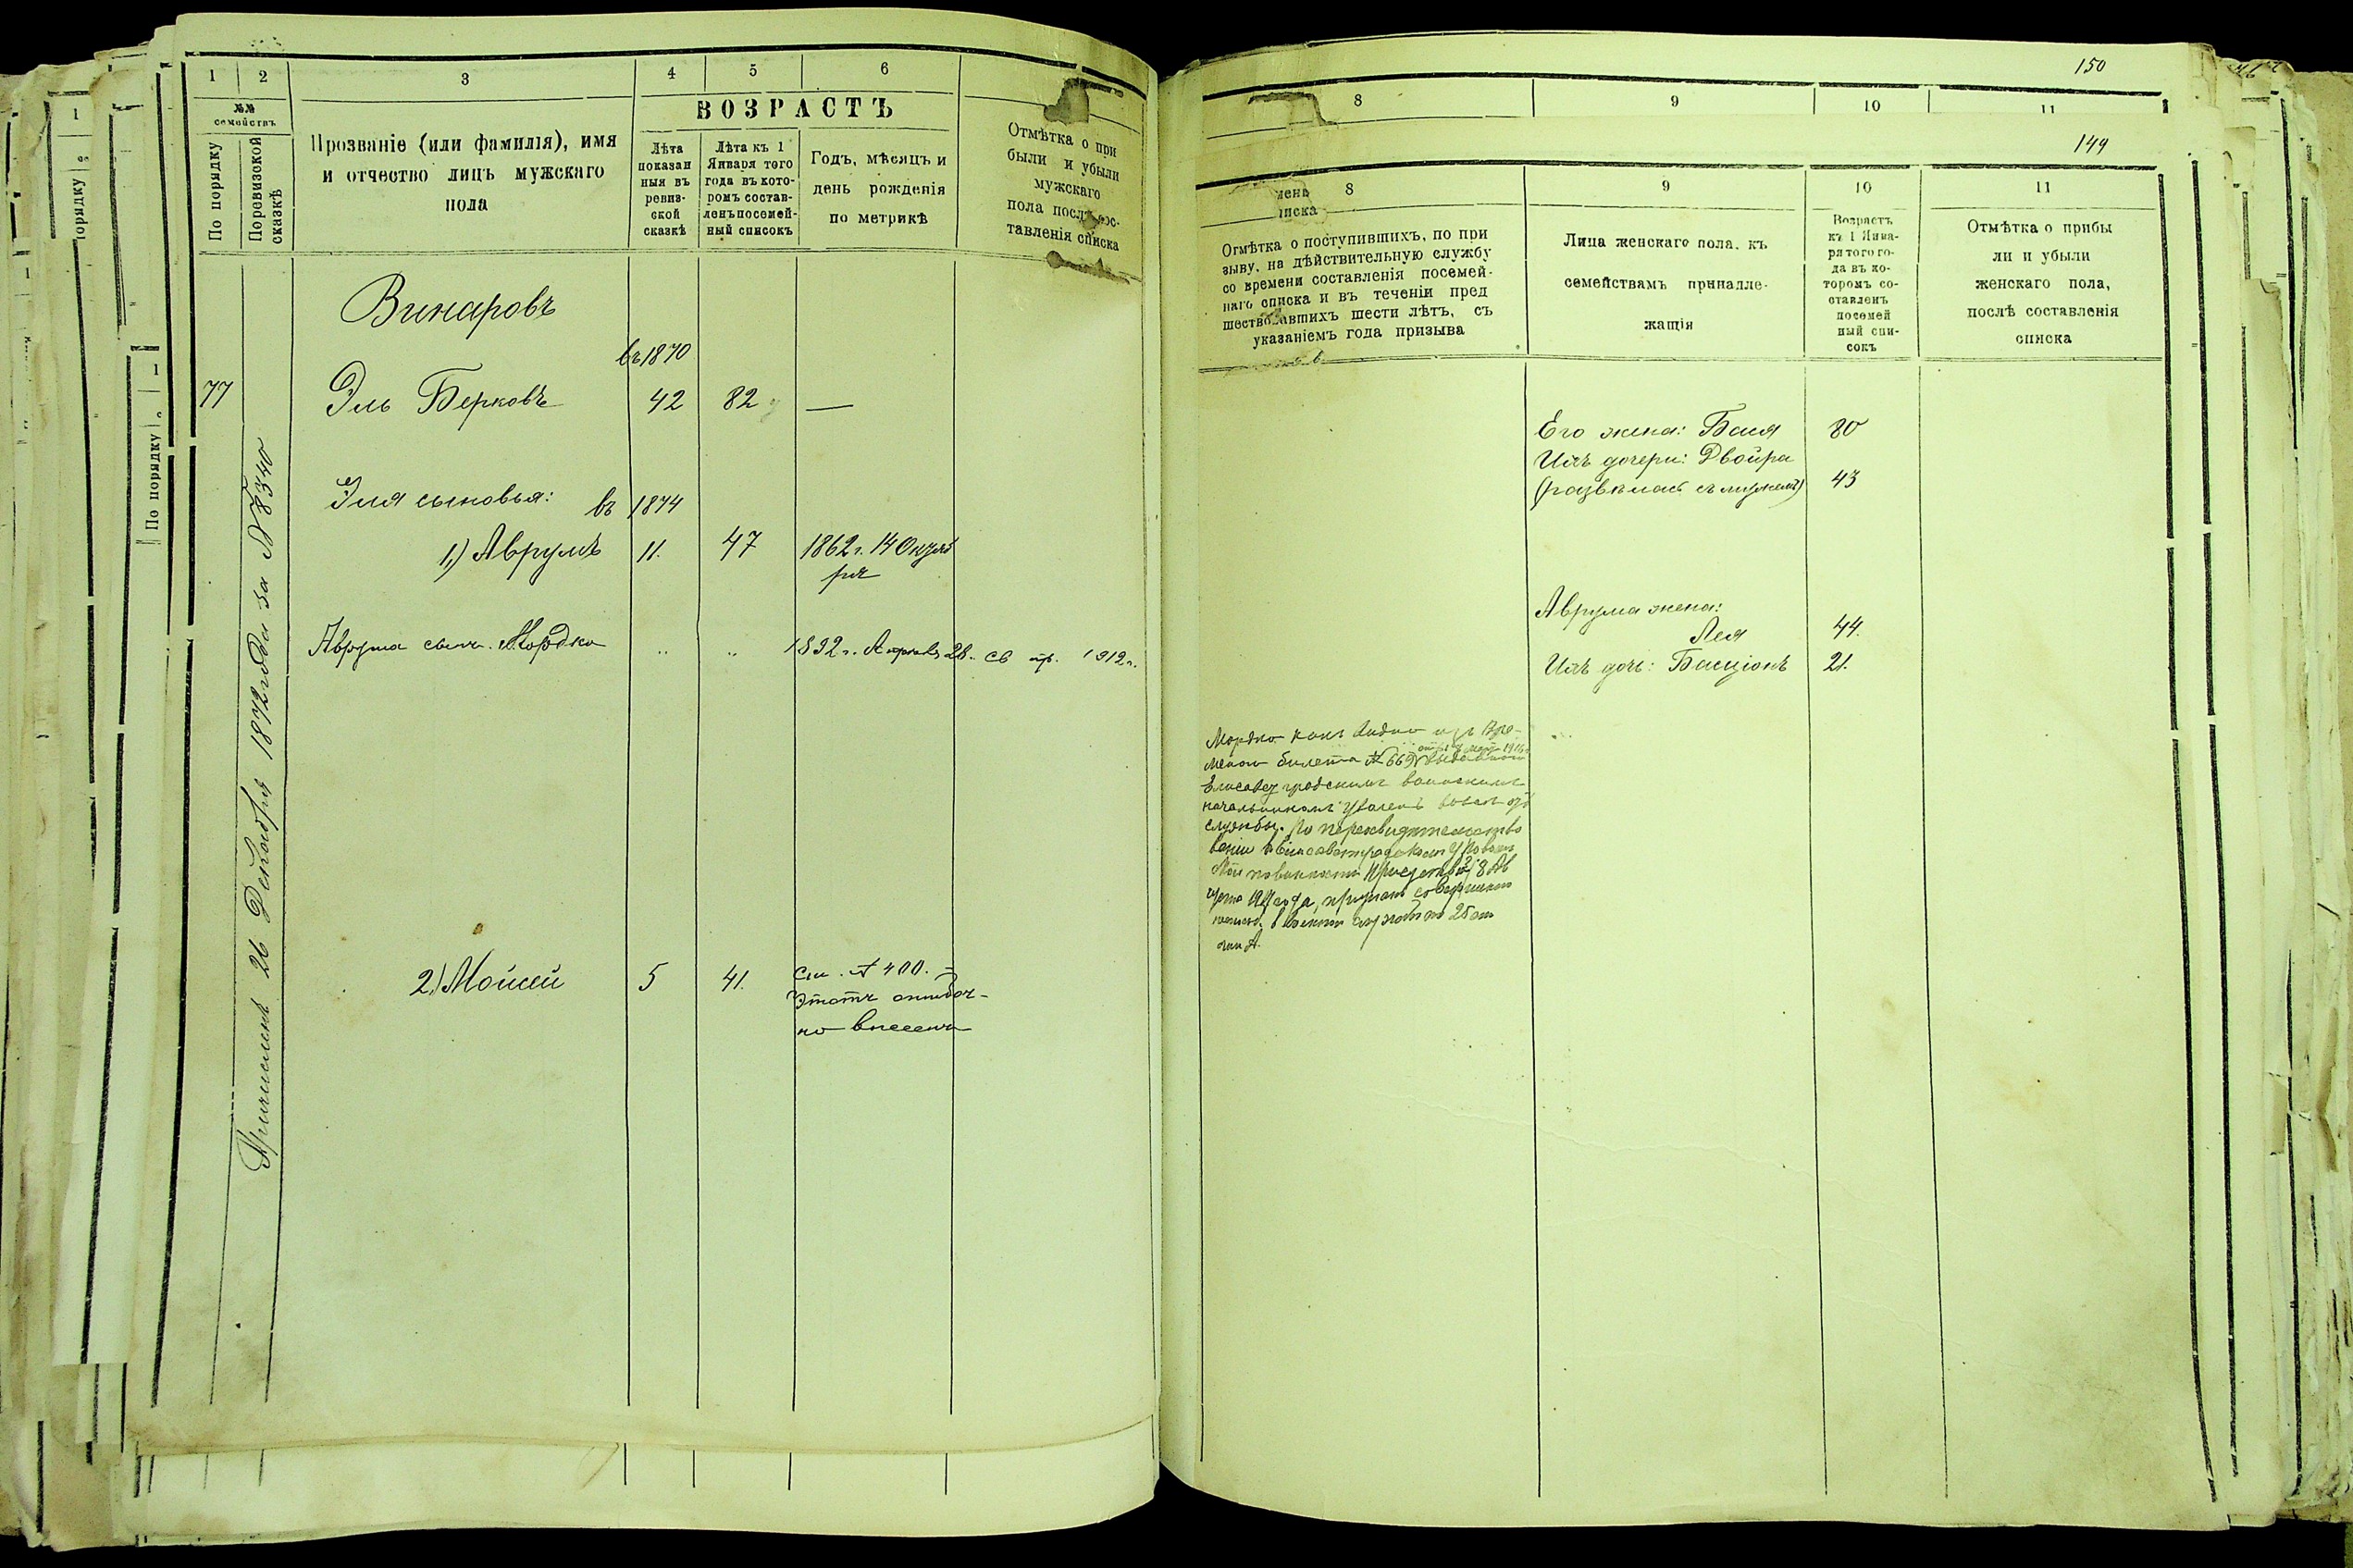 1 2 3 4 5 6
№№ семействъ
По порядку
По ревизской сказкѣ
Прозваніе (или фамилія), имя
и отчество лицъ мужскаго
пола
ВОЗРАСТЪ
Лѣта
показан
ныя въ
ревиз-
ской
сказкѣ
Лѣта къ 1
Января того
года въ кото-
ромъ состав-
ленъ посемей-
ный списокъ
Годъ, мѣсяцъ и
день рожденія
по метрикѣ
Отмѣтка о при
были и убыли
мужскаго
пола послѣ сос-
тавленія списка
Причисленъ 26 Декабря 1872 года за № 8340
Винаровъ
въ 1870
77 Эль Берковъ 42 82 —
Эля сыновья: въ 1874
1,) Аврумъ 11. 47 1862 г. 14 Октяб
ря
Аврума сынъ. Мордко .. .. 1892 г. Апрѣля 28. св пр. 1912 г.
2,) Мойсей 5 41. См. № 400. –
Этотъ ошибоч-
но внесенъ
150
8 9 10 11
149
8 9 10 11
Отмѣтка о поступившихъ, по при
зыву, на дѣйствительную службу
со времени составленія посемей-
наго списка и въ теченіи пред
шествовавшихъ шести лѣтъ, съ
указаніемъ года призыва
Лица женскаго пола, къ
семействамъ принадле-
жащія
Возрастъ
къ 1 Янва-
ря того го-
да въ ко-
торомъ со-
ставленъ
посемей
ный спи-
сокъ
Отмѣтка о прибы
ли и убыли
женскаго пола,
послѣ составленія
списка
Его жена: Бася 80
Ихъ дочери: Двойра
(развѣлась съ мужемъ) 43
Аврума жена:
Лея 44.
Ихъ дочь: Басціонъ 21.
Мордко какъ видно изъ Вре-
менного билета № 669 выданного
Елисаветградскимъ воинскимъ
начальникомъ уволенъ вовсе отъ
службы. По переосвидѣтельство
ваніи въ Елисаветградскомъ У По воин
ской повинности Присутствіи, 8 Ав
густа 19 года, признанъ совершенно
въ военной службѣ по 25 ст